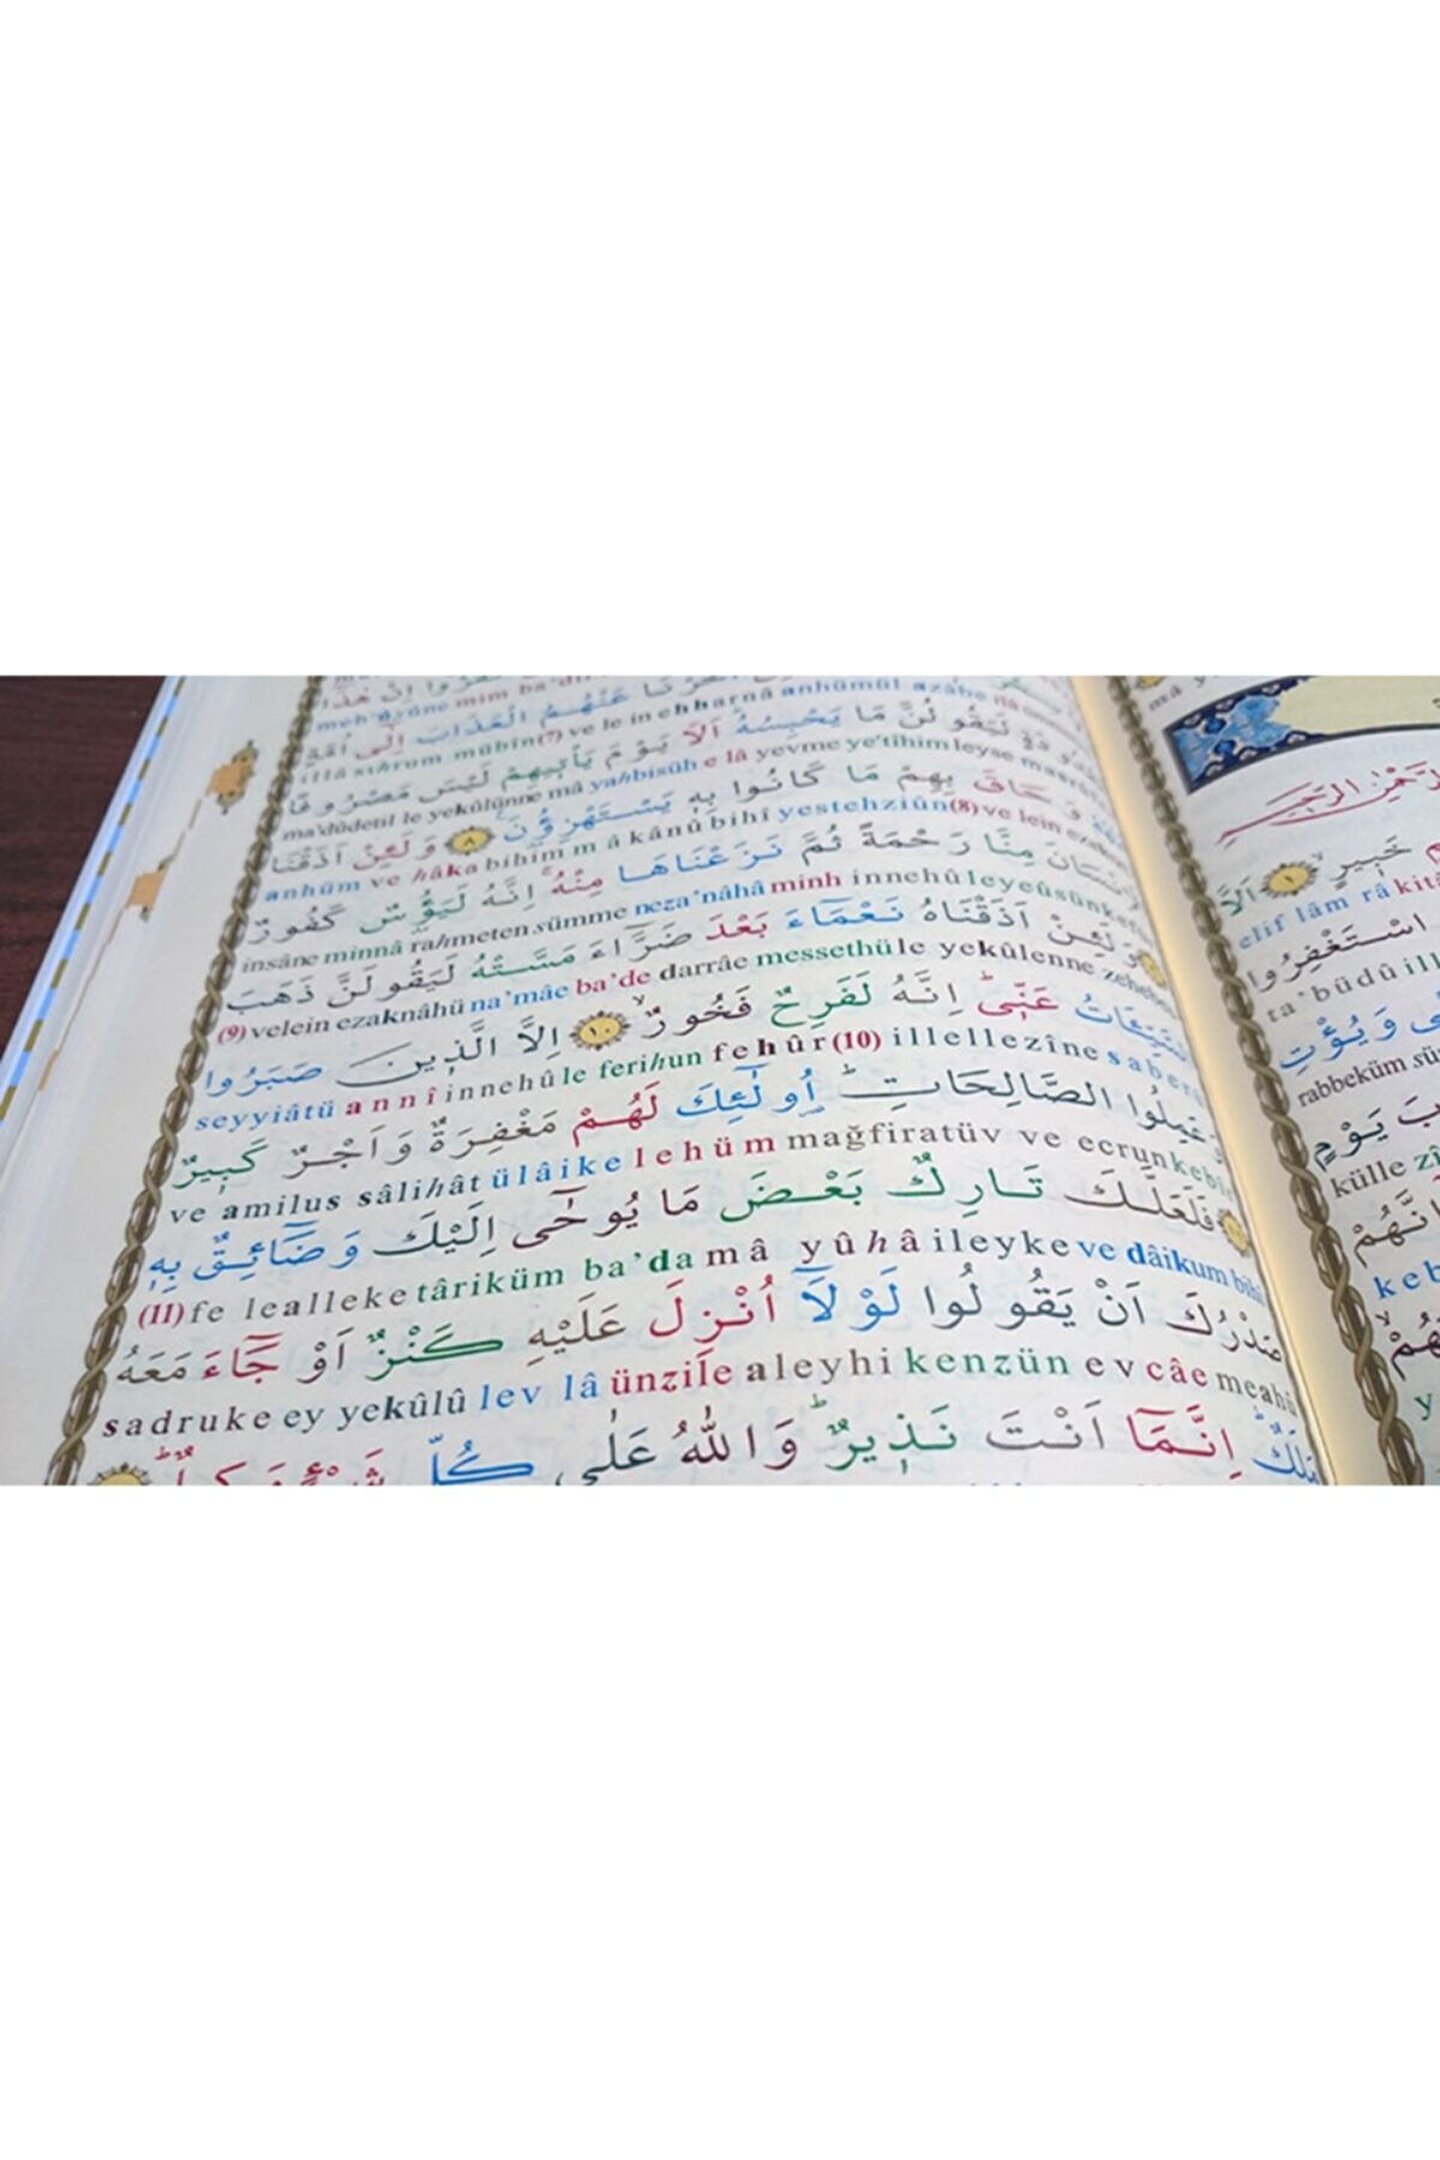 مُبٖينٌ
meb'ûsûne mim ba'di
عَنْهُمُ الْعَذَابَ اِلٰٓى اُمَّةٍ
illâ sihrum mübîn(7) ve le in ehharnâ anhümül azâbe ilâ
لَيَقُولُنَّ مَا يَحْبِسُهُؕ اَلَا يَوْمَ يَأْتٖيهِمْ لَيْسَ مَصْرُوفًا
ma'dûdetil le yekûlünne mâ yahbisüh e lâ yevme ye'tîhim leyse
وَ حَاقَ بِهِمْ مَا كَانُوا بِهٖ يَسْتَهْزِؤُ۫نَ ﴿٨﴾ وَ لَئِنْ اَذَقْنَا
anhüm ve hâka bihim m â kânû bihî yestehziûn(8) ve lein
مِنَّا رَحْمَةً ثُمَّ نَزَعْنَاهَا مِنْهُۚ اِنَّهُ لَيَؤُ۫سٌ كَفُورٌ
insâne minnâ rahmeten sümme neza'nâhâ minh innehû leyeûsün
وَلَئِنْ اَذَقْنَاهُ نَعْمَٓاءَ بَعْدَ ضَرَّٓاءَ مَسَّتْهُ لَيَقُولَنَّ ذَهَبَ
(9) velein ezaknâhü na'mâe ba'de darrâe messethü le yekûlenne
عَنّٖىؕ اِنَّهُ لَفَرِحٌ فَخُورٌۙ ﴿١٠﴾ اِلَّا الَّذٖينَ صَبَرُوا
seyyiâtü annî innehû le ferihun fehûr(10) illellezîne saberû
الصَّالِحَاتِؕ اُو۬لٰٓئِكَ لَهُمْ مَغْفِرَةٌ وَ اَجْرٌ كَبٖيرٌ
ve amilus sâlihât ülâike lehüm mağfiratüv ve ecrun
فَلَعَلَّكَ تَارِكٌ بَعْضَ مَا يُوحٰٓى اِلَيْكَ وَ ضَٓائِقٌ بِهٖ
(11) fe lealleke târiküm ba'da mâ yûhâ ileyke ve dâikum bihî
صَدْرُكَ اَنْ يَقُولُوا لَوْ لَٓا اُنْزِلَ عَلَيْهِ كَنْزٌ اَوْ جَٓاءَ مَعَهُ
sadruke ey yekûlû lev lâ ünzile aleyhi kenzün ev câe meahû
مَلَكٌؕ اِنَّمَٓا اَنْتَ نَذٖيرٌؕ وَ اللّٰهُ عَلٰى كُلِّ
خَبٖيرٍۙ ﴿١﴾
elif lâm râ
اسْتَغْفِرُوا
ta'büdû
وَ يُؤْتِ
rabbeküm
يَوْمٍ
külle
اِنَّهُمْ